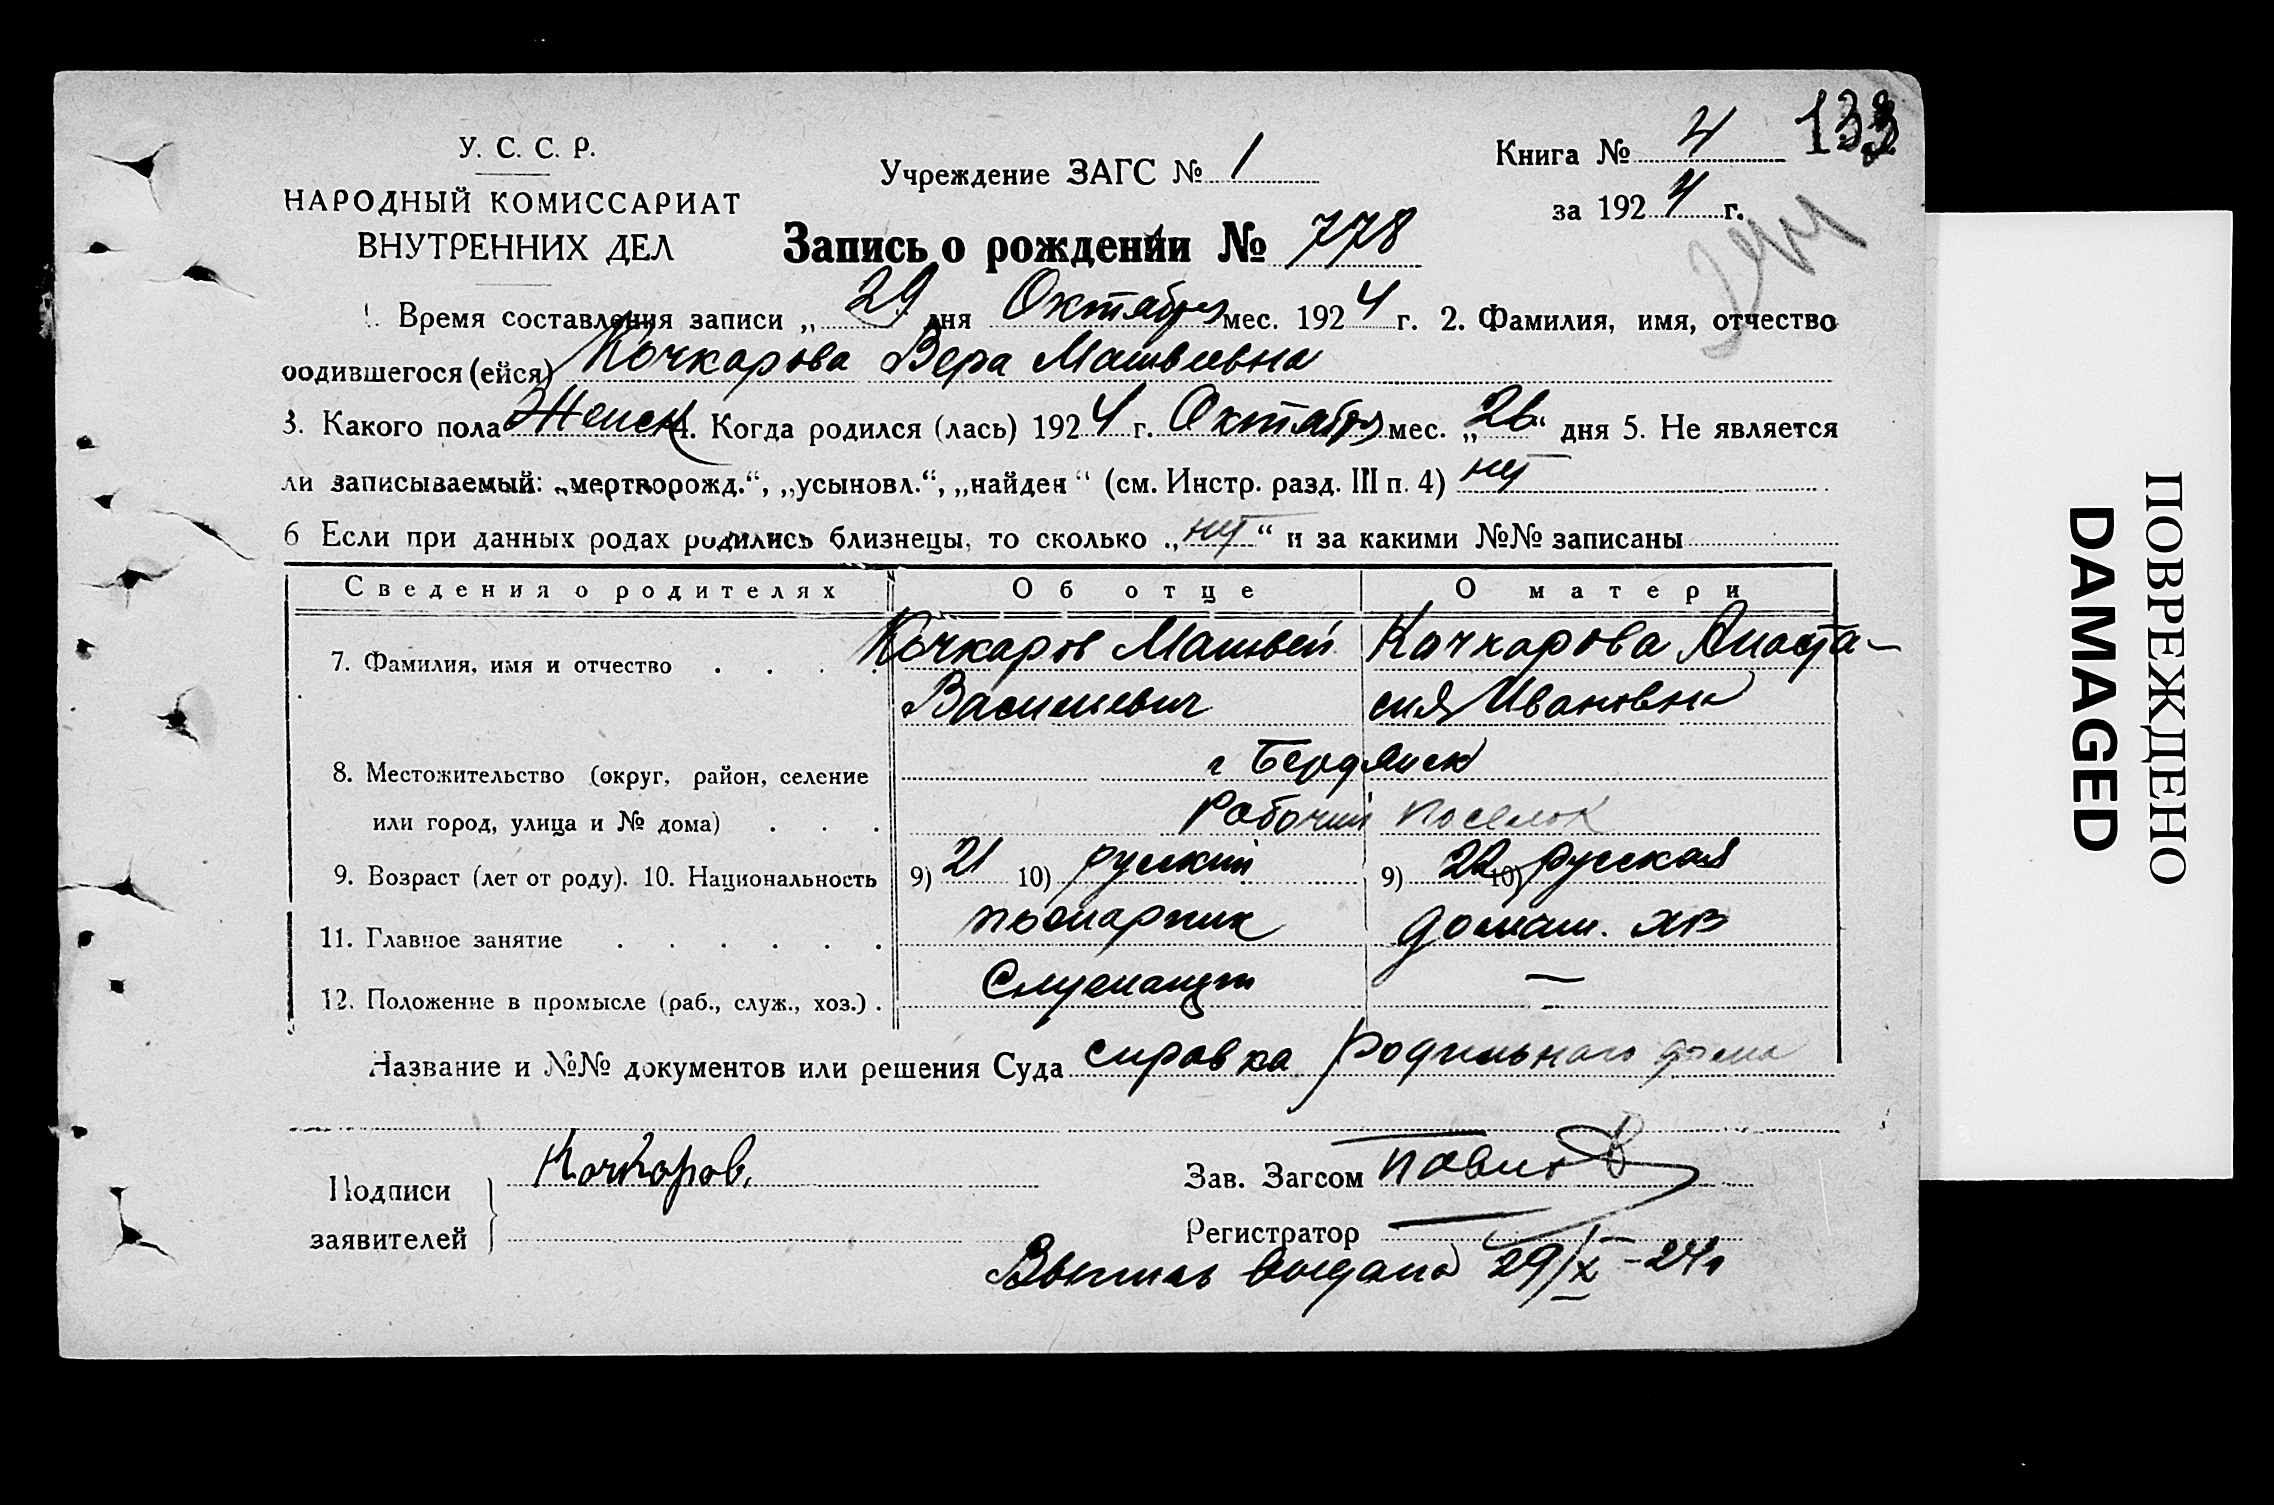 У. С. С. Р.
НАРОДНЫЙ КОМИССАРИАТ
ВНУТРЕННИХ ДЕЛ
Учреждение ЗАГС № 1
Книга № 4 133
за 1924 г.
Запись о рождении № 778
1. Время составления записи „ 29 дня Октября мес. 1924 г. 2. Фамилия, имя, отчество
родившегося (ейся) Кочкарова Вера Матвеевна
3. Какого пола Женск 4. Когда родился (лась) 1924 г. Октября мес. „26“ дня 5. Не является
ли записываемый: „мертворожд.“, „усыновл.“, „найден“ (см. Инстр. разд. III п. 4) нет
6 Если при данных родах родились близнецы, то сколько „нет“ и за какими №№ записаны
Сведения о родителях Об отце О матери
7. Фамилия, имя и отчество . . . . Кочкаров Матвей Кочкарова Анаста-
Васильевич сия Ивановна
8. Местожительство (округ, район, селение г Бердянск
или город, улица и № дома) . . . Рабочий поселок
9. Возраст (лет от роду). 10. Национальность 9) 21 10) русский 9) 22 10) русская
11. Главное занятие . . . . . . пожарник домаш. хоз
12. Положение в промысле (раб., служ., хоз.) . Служащий —
Название и №№ документов или решения Суда справка родильного дома
Подписи
заявителей
Кочкаров.
Зав. Загсом Павлов
Регистратор
Выпись выдана 29/X-24г
ПОВРЕЖДЕНО
DAMAGED